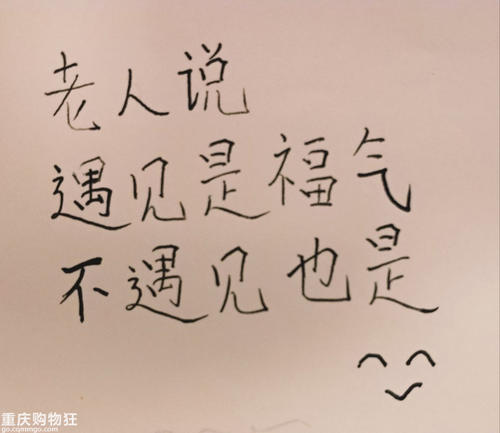 老人说
遇见是福气
不遇见也是
重庆购物狂
go.cqmmgo.com